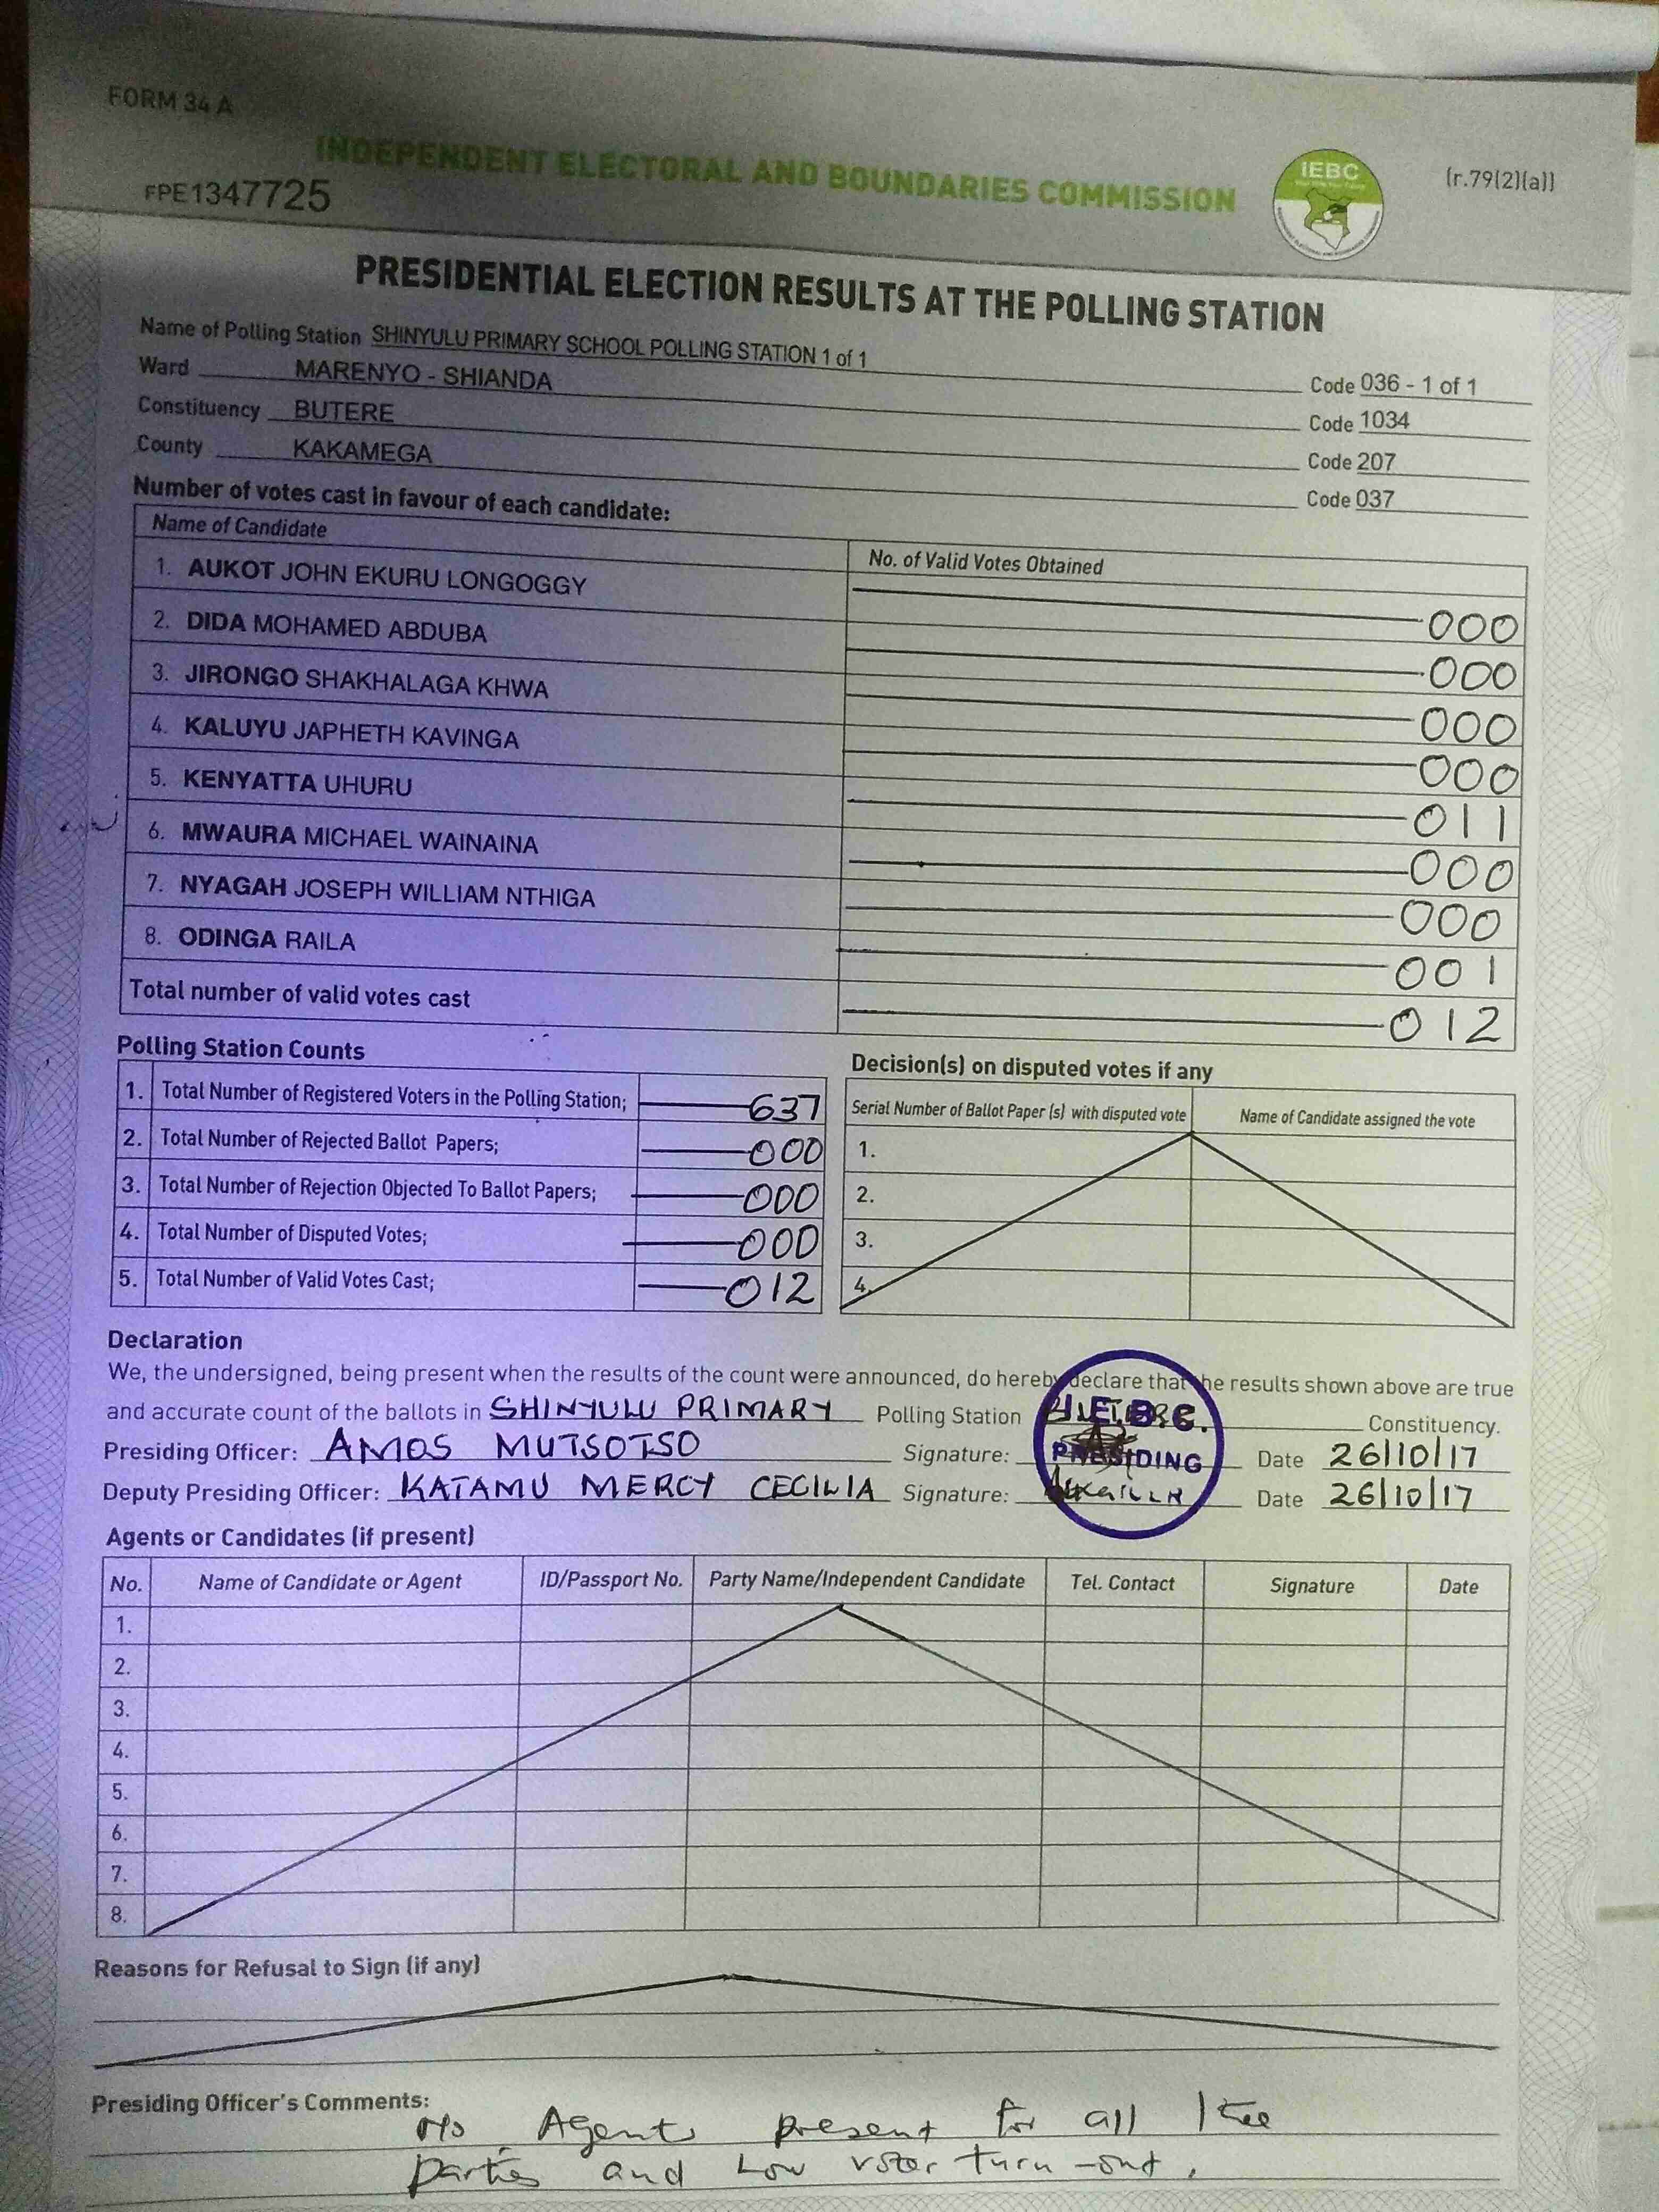 FORM 34 A
INDEPENDENT ELECTORAL AND BOUNDARIES COMMISSION
IEBC
(r.79(2)(a))
FPE1347725
PRESIDENTIAL ELECTION RESULTS AT THE POLLING STATION
Name of Polling Station SHINYULU PRIMARY SCHOOL POLLING STATION 1 of 1 Code 036 - 1 of 1
Ward MARENYO - SHIANDA Code 1034
Constituency BUTERE Code 207
County KAKAMEGA Code 037
Number of votes cast in favour of each candidate:
Name of Candidate No. of Valid Votes Obtained
1. AUKOT JOHN EKURU LONGOGGY 000
2. DIDA MOHAMED ABDUBA 000
3. JIRONGO SHAKHALAGA KHWA 000
4. KALUYU JAPHETH KAVINGA 000
5. KENYATTA UHURU 011
6. MWAURA MICHAEL WAINAINA 000
7. NYAGAH JOSEPH WILLIAM NTHIGA 000
8. ODINGA RAILA 001
Total number of valid votes cast 012
Polling Station Counts
1. Total Number of Registered Voters in the Polling Station; 637
2. Total Number of Rejected Ballot Papers; 000
3. Total Number of Rejection Objected To Ballot Papers; 000
4. Total Number of Disputed Votes; 000
5. Total Number of Valid Votes Cast; 012
Decision(s) on disputed votes if any
Serial Number of Ballot Paper (s) with disputed vote Name of Candidate assigned the vote
1.
2.
3.
4.
Declaration
We, the undersigned, being present when the results of the count were announced, do hereby declare that the results shown above are true
and accurate count of the ballots in SHINYULU PRIMARY Polling Station Constituency.
Presiding Officer: AMOS MUTSOTSO Signature: Date 26/10/17
Deputy Presiding Officer: KATAMU MERCY CECILIA Signature: Date 26/10/17
I.E.B.C.
PRESIDING
Agents or Candidates (if present)
No. Name of Candidate or Agent ID/Passport No. Party Name/Independent Candidate Tel. Contact Signature Date
1.
2.
3.
4.
5.
6.
7.
8.
Reasons for Refusal to Sign (if any)
Presiding Officer's Comments:
No Agents present for all the
parties and Low voter turn-out.